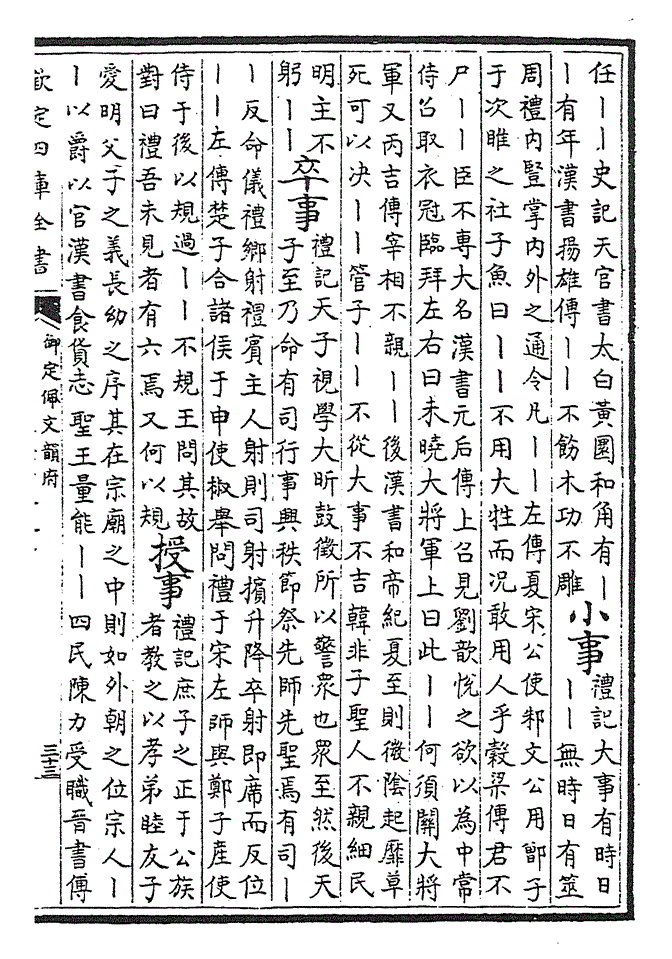 任丨丨史記天官書太白黃圜和角有丨
丨有年漢書揚雄傳丨丨不飭木功不雕
小事
禮記大事有時日
丨丨無時日有筮
周禮內豎掌內外之通令凡丨丨左傳夏宋公使邾文公用鄫子
于次睢之社子魚曰丨丨不用大牲而况敢用人乎穀梁傳君不
尸丨丨臣不專大名漢書元后傳上召見劉歆悅之欲以為中常
侍召取衣冠臨拜左右曰未曉大將軍上曰此丨丨何須關大將
軍又丙吉傳宰相不親丨丨後漢書和帝紀夏至則微陰起靡草
死可以决丨丨管子丨丨不從大事不吉韓非子聖人不親細民
明主不
躬丨丨
卒事
禮記天子視學大昕鼓徵所以警衆也衆至然後天
子至乃命有司行事興秩節祭先師先聖焉有司丨
丨反命儀禮鄉射禮賓主人射則司射擯升降卒射即席而反位
丨丨左傳楚子合諸侯于申使椒舉問禮于宋左師與鄭子產使
侍于後以規過丨丨不規王問其故
對曰禮吾未見者有六焉又何以規
授事
禮記庶子之正于公族
者教之以孝弟睦友子
愛明父子之義長幼之序其在宗廟之中則如外朝之位宗人丨
丨以爵以官漢書食貨志聖王量能丨丨四民陳力受職晉書傅
欽定四庫全書
御定佩文韻府
三十三